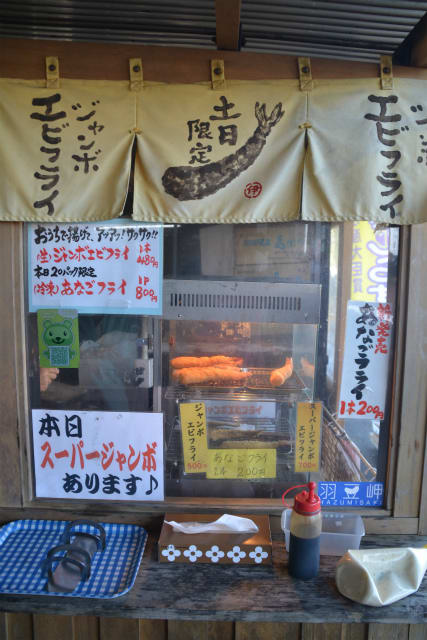 ジャンボ
エビフライ
土日
限定
伊
ジャンボ
エビフライ
おうちで揚げて、アツアツ!サクサク!!
(生)ジャンボエビフライ 1本480円
本日20パック限定
(冷凍)あなごフライ 1P800円
新発売
あなごフライ
1本200円
本日
スーパージャンボ
あります♪
ジャンボ
エビフライ
500
ジャンボエビフライ
あなごフライ
1本 200円
スーパージャンボ
エビフライ
700
羽豆岬
HAZUMISAKI